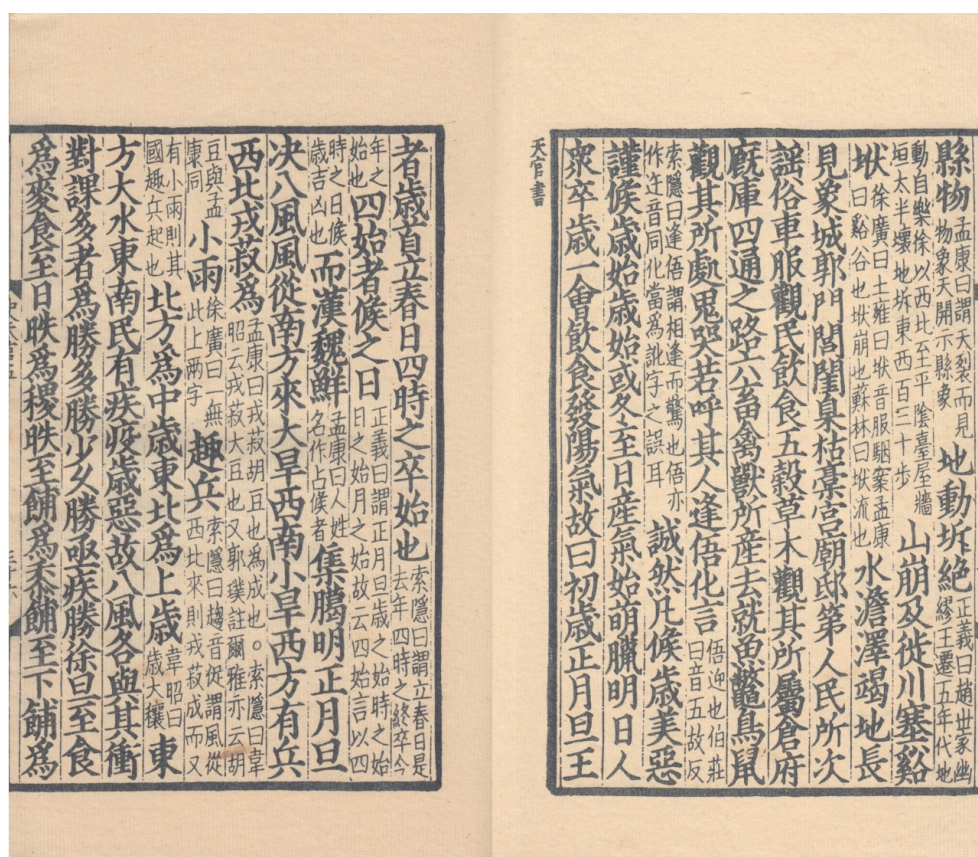 縣物孟康曰謂天裂而見物象天開示縣象地動坼絕正義曰趙世家幽繆王遷五年代地
動自樂徐以西北至平陰臺屋牆垣太半壞地坼東西百三十步山崩及徙川塞谿
垘徐廣曰土雍曰垘音服駰案孟康曰谿谷也垘崩也蘇林曰垘流也水澹澤竭地長
見象城郭門閭閨臬枯槀宮廟邸第人民所次
謠俗車服觀民飲食五穀草木觀其所屬倉府
廐庫四通之路六畜禽獸所産去就魚鼈鳥鼠
觀其所處鬼哭若呼其人逢俉化言俉迎也伯莊曰音五故反
索隱曰逢俉謂相逢而驚也俉亦作迕音同化當爲訛字之誤耳誠然凡候歲美惡
謹候歲始歲始或冬至日産氣始萌臘明日人
衆卒歲一會飲食發陽氣故曰初歲正月旦王
天官書
者歲首立春日四時之卒始也索隱曰謂立春日是去年四時之終卒今
年之始也四始者候之日正義曰謂正月旦歲之始時之始日之始月之始故云四始言以四
時之日候歲吉凶也而漢魏鮮孟康曰人姓名作占候者集臘明正月旦
决八風風從南方來大旱西南小旱西方有兵
西北戎菽爲孟康曰戎菽胡豆也爲成也。索隱曰韋昭云戎菽大豆也又郭璞註爾雅亦云胡
豆與孟康同小雨徐廣曰一無此上两字趣兵索隱曰趣音促謂風從西北來則戎菽成而又
有小雨則其國趣兵起也北方爲中歲東北爲上歲韋昭曰歲大穰東
方大水東南民有疾疫歲惡故八風各與其衝
對課多者爲勝多勝少久勝亟疾勝徐旦至食
爲麥食至日昳爲稷昳至餔爲黍餔至下餔爲